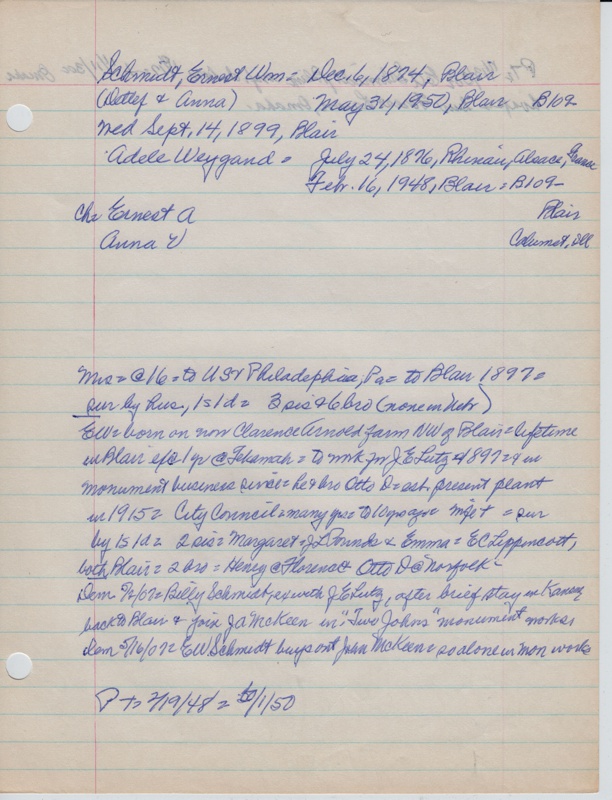 Schmidt, Ernest Wm = Dec. 6, 1874, Blair
(Detlef & Anna) May 31, 1950, Blair B109-
Med Sept. 14, 1899, Blair
Adele Weygand = July 24, 1876, Rhinau, Alsace, France
Febr. 16, 1948, Blair = B109-
Ch = Ernest A Blair
Anna V Calumet, Ill
Mrs = @ 16 = to US & Philadelphia, Pa = to Blair 1897 =
sur by hus, 1s 1d = 3 sis & 6 bro (none in Nebr)
EW = born on now Clarence Arnold farm NW of Blair = lifetime
in Blair exc 1 yr @ Tekamah = to wrk for J E Lutz 1897 & in
monument business since = he & bro Otto D = est present plant
in 1915 = City Council = many yrs = to 10 yrs ago = = sur
by 1s 1d = 2 sis = Margaret = J L Pounds & Emma = E C Lippincott,
both Blair = 2 bro = Henry @ Florence & Otto D @ Norfolk -
Dem = Billy Schmidt, ex with J E Lutz, after brief stay in Kansas
back to Blair & join Ja McKeen in "Two Johns" monument works =
Dem 5/16/07 = E W Schmidt buys out John McKeen = so alone in mon works
P T = 2/19/48 = 6/1/50